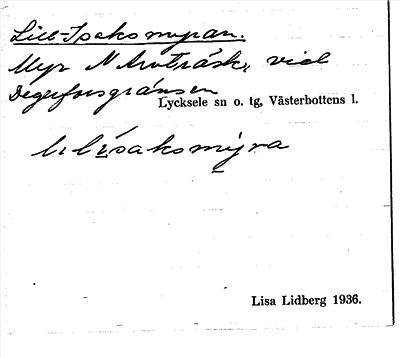 Lill-Isaksmyran.
Myr N Arvträsk, vid
Degerforsgränsen
Lycksele sn o. tg, Västerbottens l.
lılísaksmýra
Lisa Lidberg 1936.